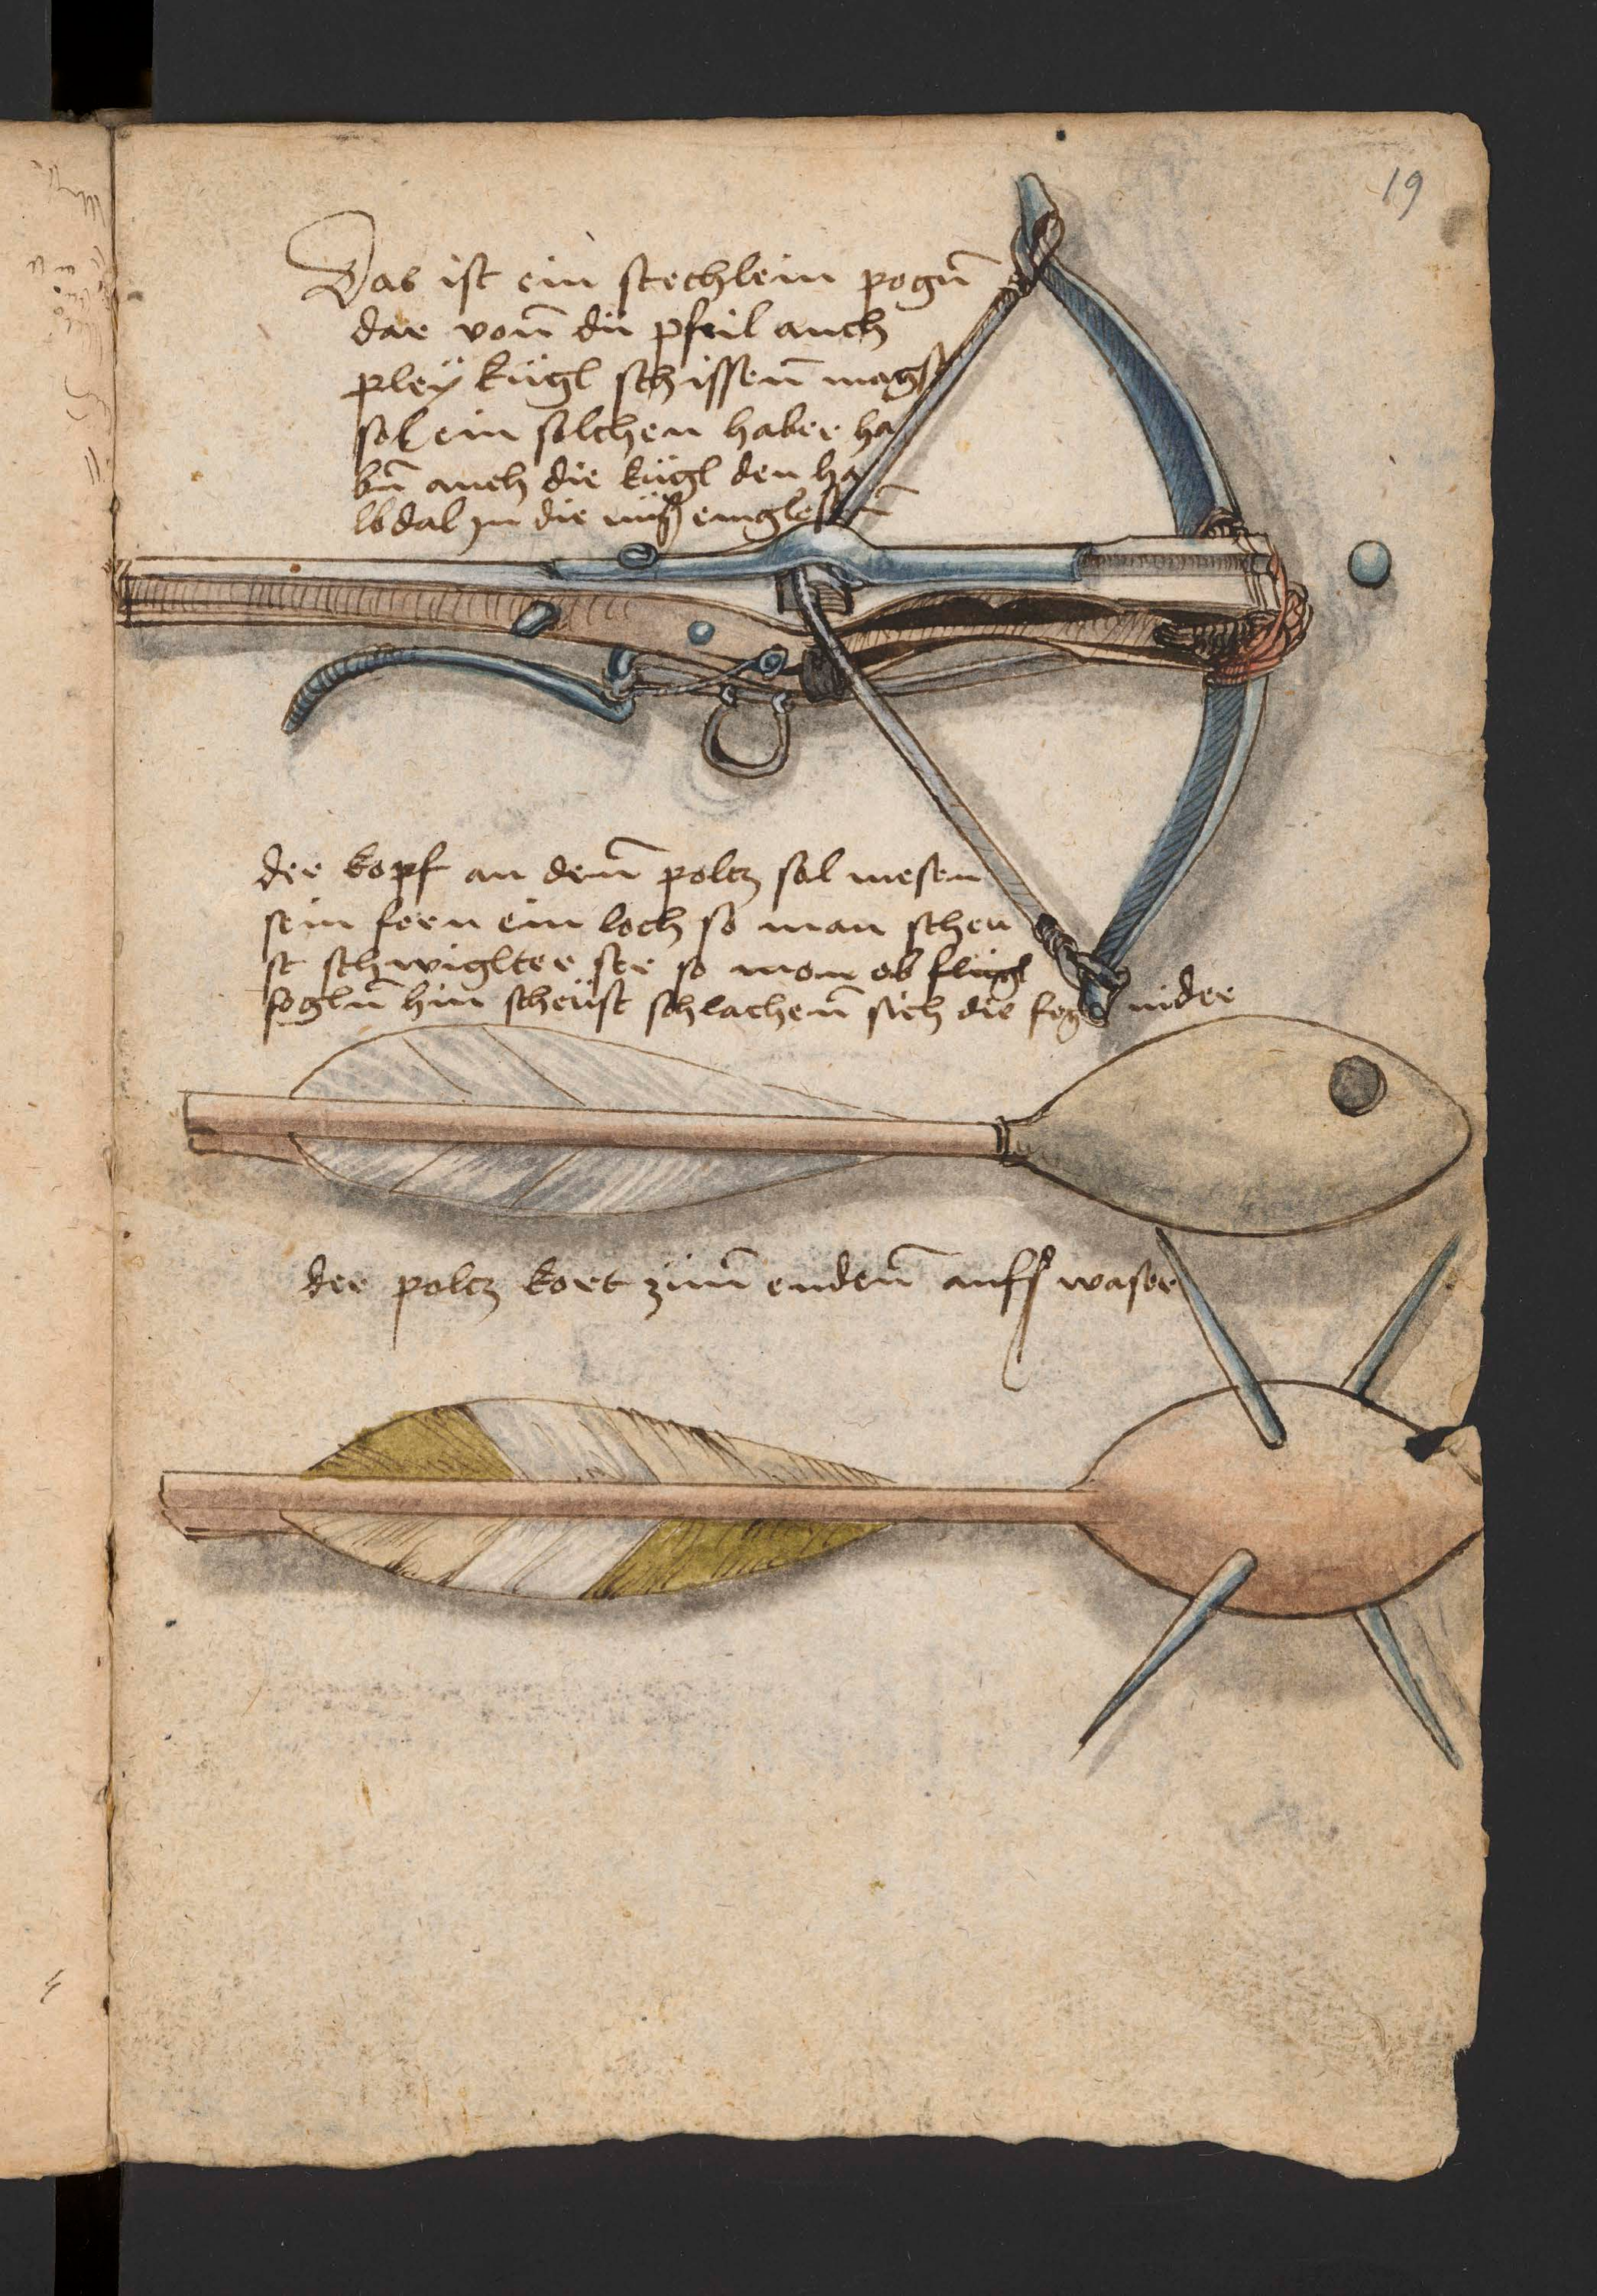 19
Das ist ein stechlein pogn̄
dar von̄ du pfeil auch
pleÿ kügl schissen̄ magst
sol ein solchen haber ha
bn̄ auch die kügl den ha
lbdal in die nuß
der kopf an den̄ poltz sol mesen
sein fern ein loch so man scheu
st schwiglter ser so man ob flügl
fogln̄ hin scheüst schlachen̄ sich die fogl nider
der poltz kort zum̄ enden̄ auffs waser